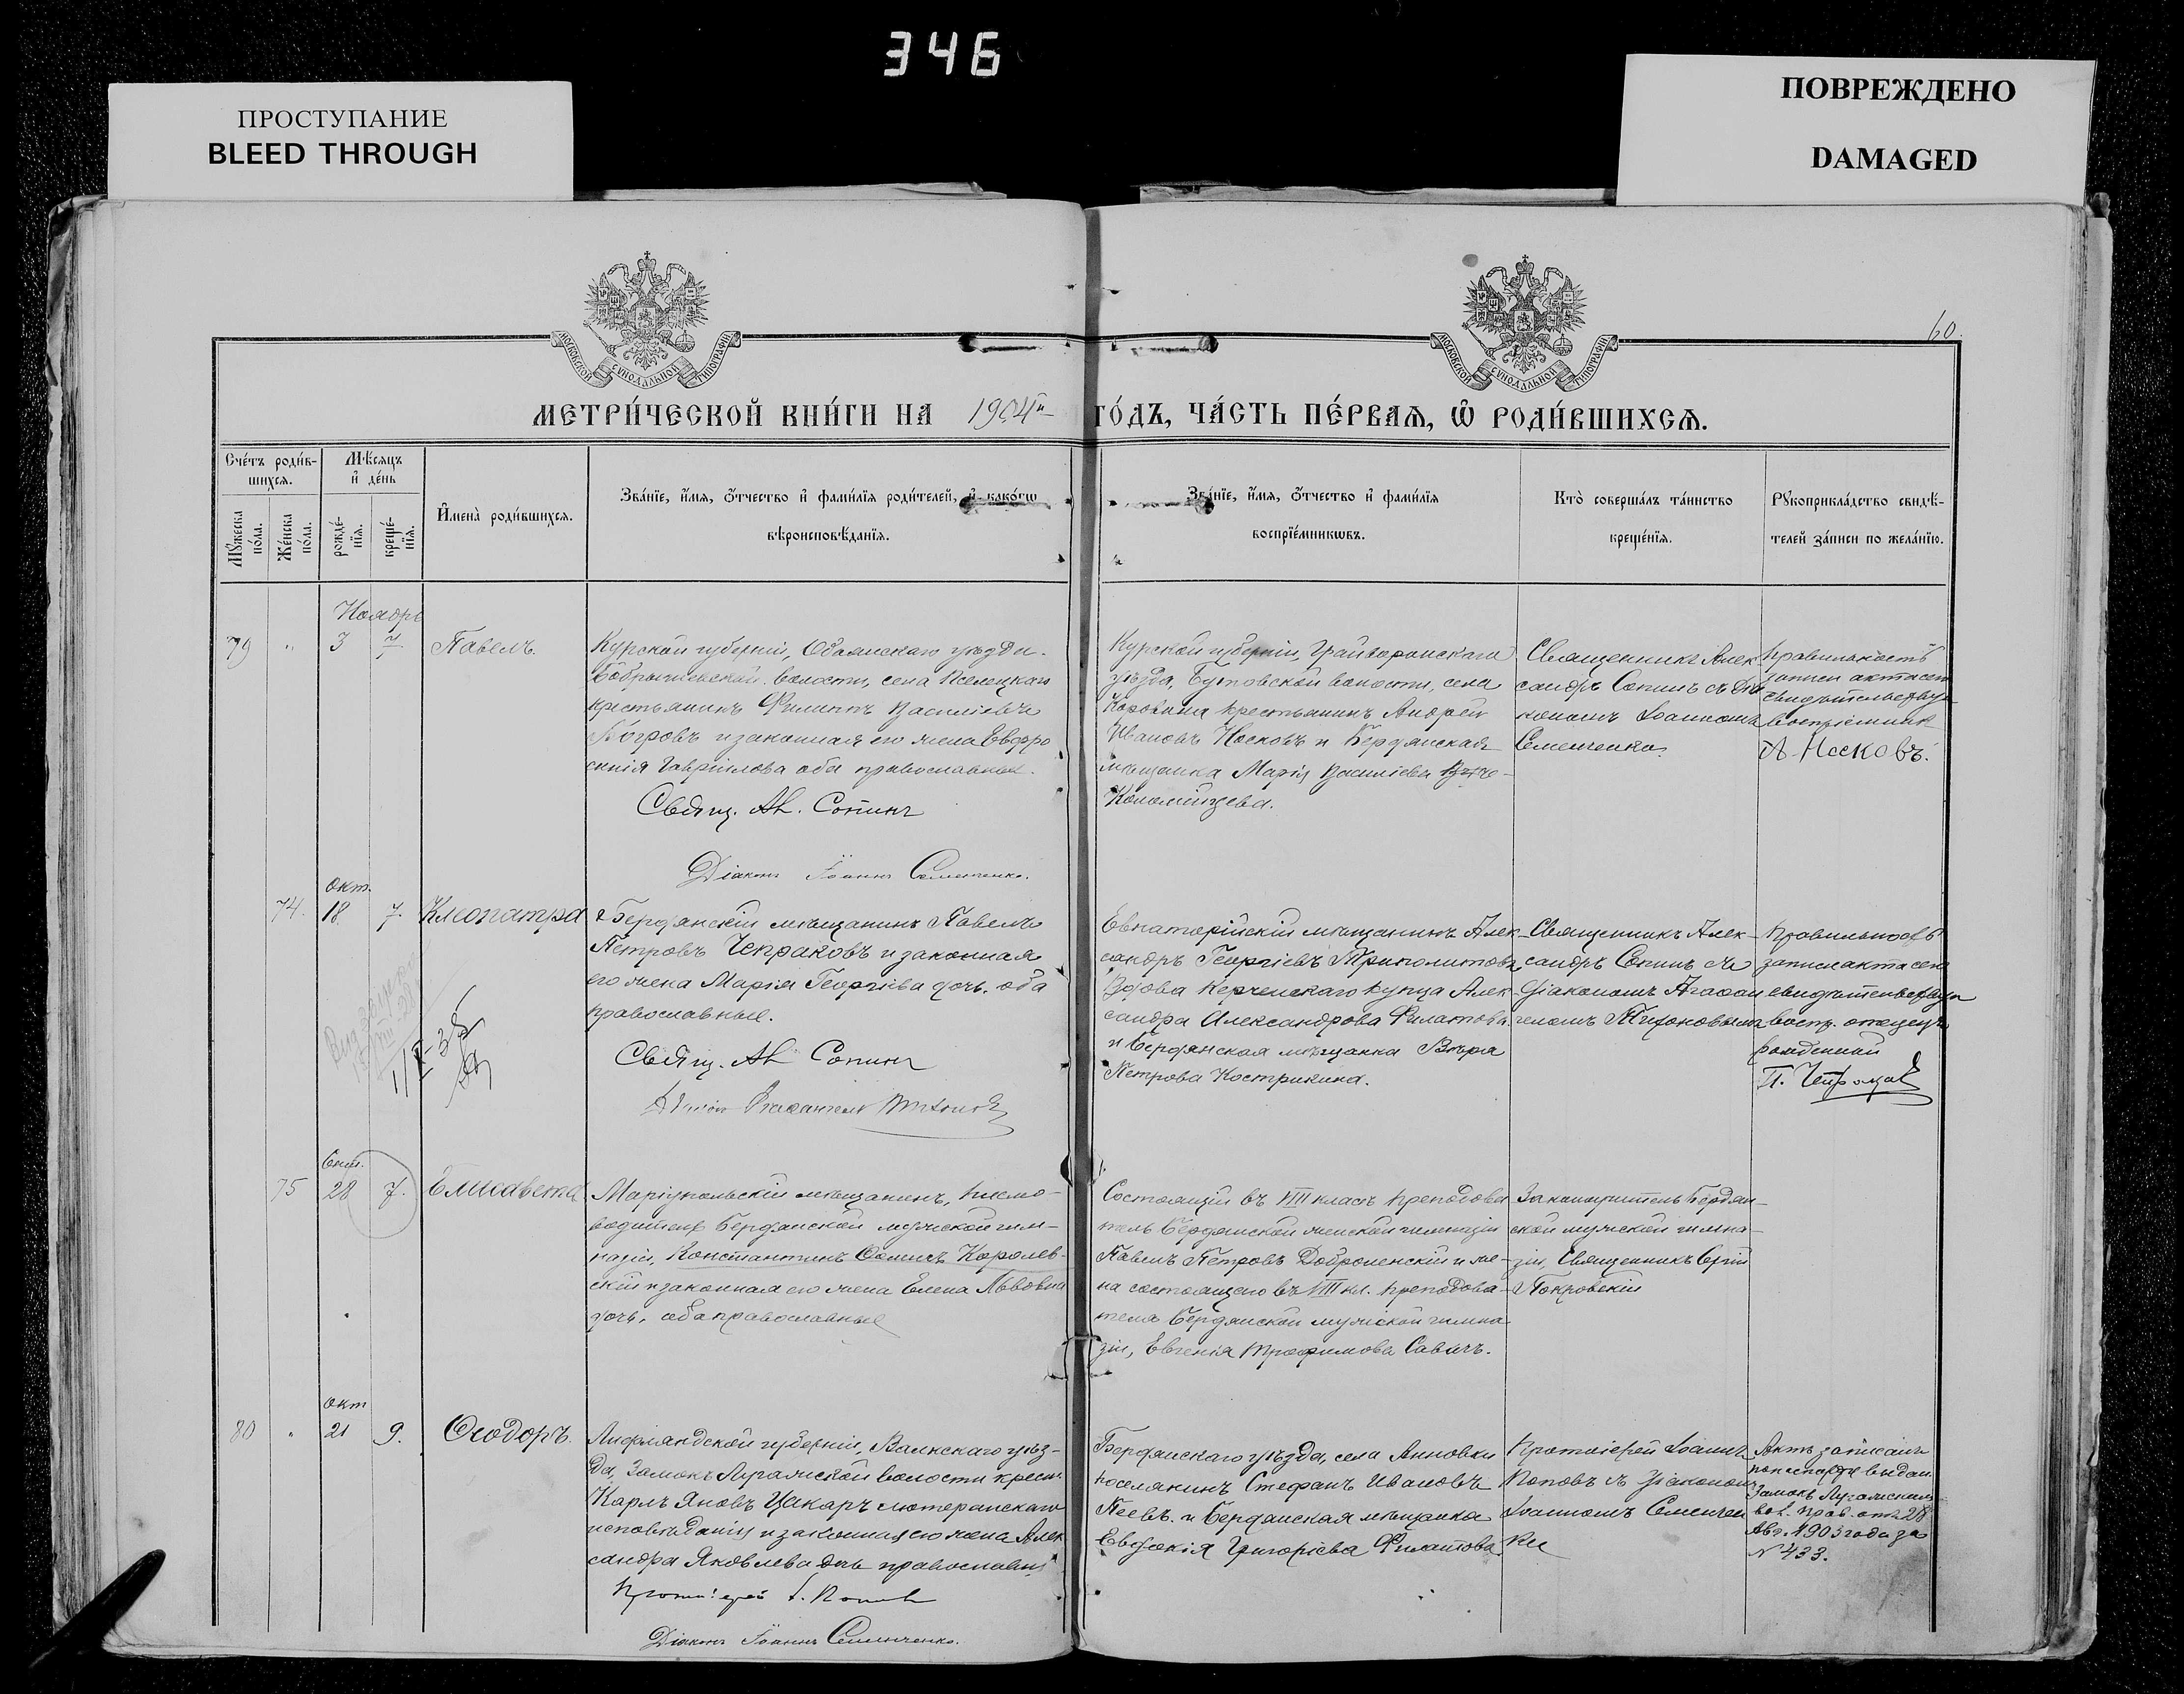 346
ПРОСТУПАНИЕ
BLEED THROUGH
ПОВРЕЖДЕНО
DAMAGED
МОСКОВСКОЙ СѴНОДАЛЬНОЙ ТИПОГРАФІИ
МОСКОВСКОЙ СѴНОДАЛЬНОЙ ТИПОГРАФІИ
60.
МЕТРИ́ЧЕСКОЙ КНИ́ГИ НА 1904й ГО́ДЪ, ЧА́СТЬ ПЕ́РВАЯ, Ѡ РОДИ́ВШИХСЯ.
Сче́тъ роди́в-
шихся.
Мꙋ́жеска по́ла.
Же́нска по́ла.
Мѣ́сяцъ
и҆ де́нь
рожде́-
нїя.
креще́-
нїя.
И҆мена̀ роди́вшихся.
Зва́нїе, и҆́мя, ѻ҆́тчество и҆ фами́лїя роди́телей, и҆ како́гѡ
вѣроисповѣ́данїя.
Зва́нїе, и҆́мя, ѻ҆́тчество и҆ фами́лїя
воспрїе́мникѡвъ.
Кто̀ соверша́лъ та́инство
креще́нїя.
Рꙋкоприкла́дство свидѣ́-
телей за́писи по жела́нїю.
Ноябрь
79 " 3 7 Павелъ.
Курской губерніи, Обоянскаго уѣзда.
Бобрышевской волости, села Пселецкаго
крестьянинъ Филиппъ Василіевъ
и законная его жена Евфро
синія Гавріилова оба православные.
Свящ. Ал. Сопинъ
Діаконъ Іоаннъ Семенченко.
Курской губерніи, Грайворонскаго
уѣзда, Бутовской волости, села
крестьянинъ Андрей
Ивановъ Носковъ и Бердянская
мѣщанка Марія Василіева
Коломійцева.
Священникъ Алек
сандръ Сопинъ съ Діа
кономъ Іоанномъ
Семенченко.
Правильность
записи акта сего
свидѣтельствую
воспріемник
А Носковъ.
Окт.
74. 18. 7. Клеопатра
Бердянскій мѣщанинъ Павелъ
Петровъ Чепраковъ и законная
его жена Марія Георгіева дочь. оба
православные.
Свящ. Ал Сопинъ
Евпаторійскій мѣщанинъ Алек-
сандръ Георгіевъ Триполитовъ,
Вдова Керченскаго купца Алек-
сандра Александрова Филатова
и Бердянская мѣщанка Вѣра
Петрова Кострикина.
Священникъ Алек-
сандръ Сопинъ съ
Діакономъ Агафан
геломъ Тихоновымъ
Правильность
записи акта сего
свидѣтельствую
отецъ
рожденной
П. Чепраковъ
75 28 7. Елисавета
Маріупольскій мѣщанинъ, письмо-
водитель Бердянской мужской гим-
назіи, Константинъ Ѳоминъ Королев-
скій и законная его жена Елена Львовна
дочь, оба православные
Состоящій въ VIII классѣ преподова
тель Бердянской женской гимназіи
Павелъ Петровъ Доброленскій и же-
на состоящего въ VIII кл. преподова-
теля Бердянской мужской гимна
зіи, Евгенія Трофимова Савичъ.
Законоучитель Бердян-
ской мужской гимна-
зіи, Священникъ Сергій
Покровскій
Окт
80 " 21 9. Ѳеодоръ.
Лифляндской губерніи, Валкскаго уѣз-
да, Замокъ Лугажской волости крест.
Карлъ Яновъ Цакаръ лютеранскаго
исповѣданія и законная его жена Алек
сандра Яковлева дочь православн.
Протоіерей І. Поповъ
Діаконъ Іоаннъ Семенченко.
Бердянскаго уѣзда, села Анновки
поселянинъ Стефанъ Ивановъ
Пеевъ. и Бердянская мѣщанка
Евдокія Григоріева Филатова.
Протоіерей Іоаннъ
Поповъ съ Діакономъ
Іоанномъ Семенчен
Актъ записанъ
по паспорту выдан.
Замокъ Лугажским
вол. прав. отъ 28
Авг. 1903 года за
№ 433.